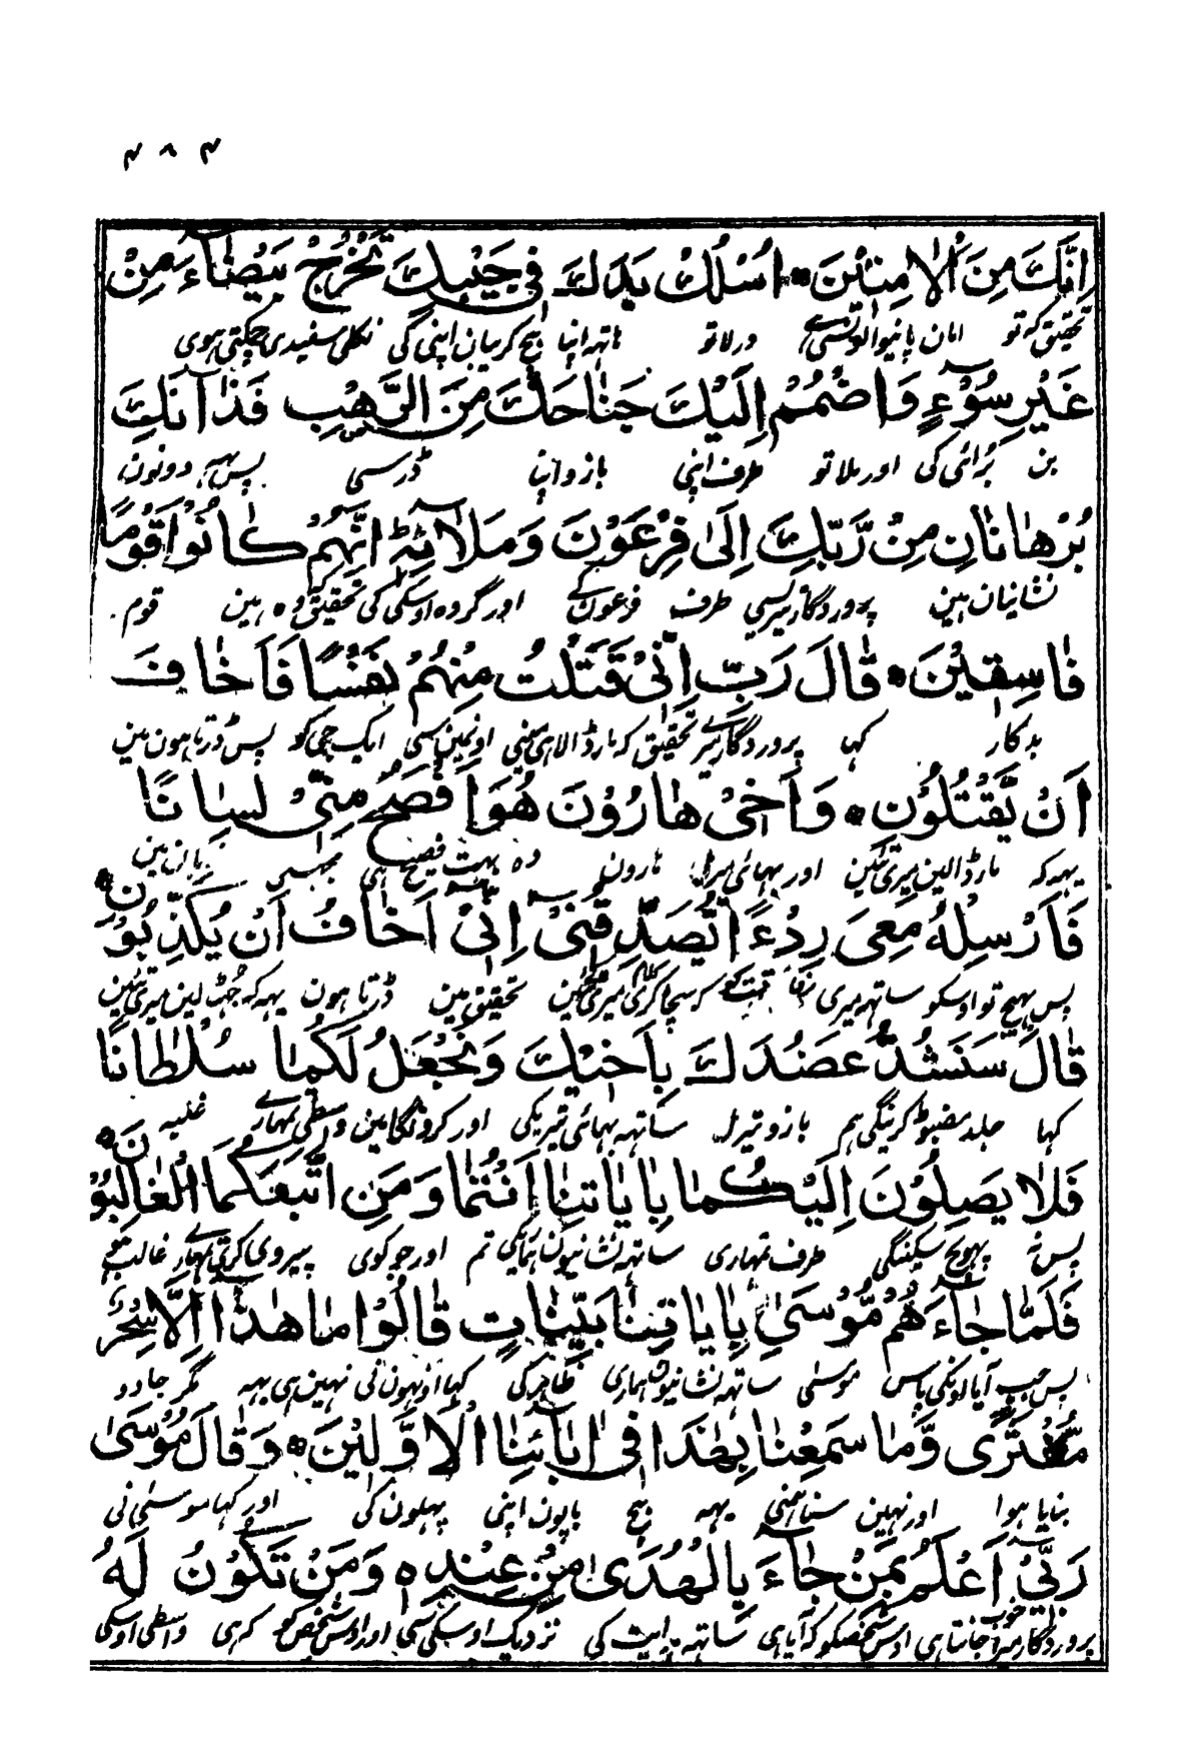 ۴۸۴
اِنَّكَ مِنَ الْاٰمِنِيْنَ ۝ اُسْلُكْ يَدَكَ فِيْ جَيْبِكَ تَخْرُجْ بَيْضَاۤءَ مِنْ
تحقیق که تو امان پانیوالونسے درلاتو هاتهه اپنا بیچ کریبان اپنی کی نکلی سفیدی چمکتی هوی
غَيْرِ سُوْۤءٍ وَاضْمُمْ اِلَيْكَ جَنَاحَكَ مِنَ الرَّهْبِ فَذَانِكَ
بن بُرائی کی اور ملا تو طرف اپنی بازو اپنا ڈر سی پس یهه دونون
بُرْهَانَانِ مِنْ رَّبِّكَ اِلٰى فِرْعَوْنَ وَمَلَا۟ئِهٖ اِنَّهُمْ كَانُوْا قَوْمًا
نشانیان هین پروردگار تیریسی طرف فرعون کے اور گروه اوسکی کی تحقیق وه هین قوم
فَاسِقِيْنَ ۝ قَالَ رَبِّ اِنِّيْ قَتَلْتُ مِنْهُمْ نَفْسًا فَاَخَافُ
بدکار کہا پروردگار میرے تحقیق که مارڈالا هی مینی اونمین سی ایک جی کو پس ڈرتا هون مین
اَنْ يَّقْتُلُوْنِ ۝ وَاَخِيْ هَارُوْنَ هُوَ اَفْصَحُ مِنِّيْ لِسَانًا
یهه که مارڈالین میری تئین اور بهائی میرا هارون وه بهت فصیح هی مجهسی زبان مین
فَاَرْسِلْهُ مَعِيَ رِدْءًا يُّصَدِّقُنِيْ اِنِّيْ اَخَافُ اَنْ يُّكَذِّبُوْنِ ۝
پس بهیج تو اوسکو ساتهه میری کر سچا کری میری تئین تحقیق مین ڈرتا هون یهه که جُهٹلاین میری تئین
قَالَ سَنَشُدُّ عَضُدَكَ بِاَخِيْكَ وَنَجْعَلُ لَكُمَا سُلْطَانًا
کہا جلد مضبوط کرینگی هم بازو تیرا ساتهه بهائی تیریکی اور کرونگا مین واسطی تمہارے غلبه
فَلَا يَصِلُوْنَ اِلَيْكُمَا بِاٰيَاتِنَا اَنْتُمَا وَمَنِ اتَّبَعَكُمَا الْغَالِبُوْنَ ۝
پس نه پہونچ سکینگی طرف تمہاری ساتهه نشانیون همار یکی تم اور جو کوی پیروی کری تمهاری غالب هو
فَلَمَّا جَاۤءَهُمْ مُّوْسٰى بِاٰيَاتِنَا بَيِّنَاتٍ قَالُوْا مَا هٰذَا اِلَّا سِحْرٌ
پس جب آیا اونکی پاس موسی ساتهه نشانیون هماری ظاهر کی کہا اونہون نی نہین هی یهه مگر جادو
مُّفْتَرًى وَّمَا سَمِعْنَا بِهٰذَا فِيْ اٰبَاۤئِنَا الْاَوَّلِيْنَ ۝ وَقَالَ مُوْسٰى
بنایا هوا اور نہین سنا همنی یهه بیچ باپون اپنی پہلون کی اور کہا موسی نی
رَبِّيْ اَعْلَمُ بِمَنْ جَاۤءَ بِالْهُدٰى مِنْ عِنْدِهٖ وَمَنْ تَكُوْنُ لَهٗ
پروردگار میرا خوب جانتا هی اوس شخصکو که آیا هی ساتهه هدایت کی نزدیک اوسکی سی اور اوس شخص کو که هی واسطی اوسکی